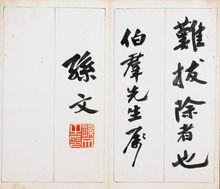 難拔除者也
伯羣先生屬
孫文